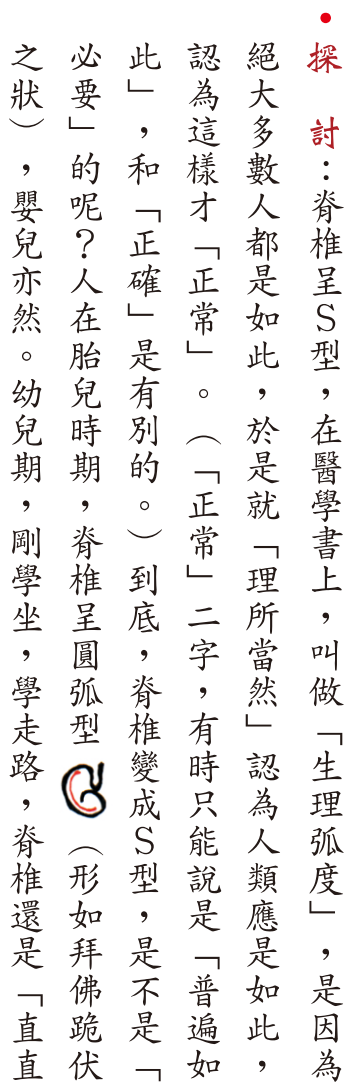 •探　討：脊椎呈Ｓ型，在醫學書上，叫做「生理弧度」，是因為
絕大多數人都是如此，於是就「理所當然」認為人類應是如此，
認為這樣才「正常」。（「正常」二字，有時只能說是「普遍如
此」，和「正確」是有別的。）到底，脊椎變成Ｓ型，是不是「
必要」的呢？人在胎兒時期，脊椎呈圓弧型（形如拜佛跪伏
之狀），嬰兒亦然。幼兒期，剛學坐，學走路，脊椎還是「直直